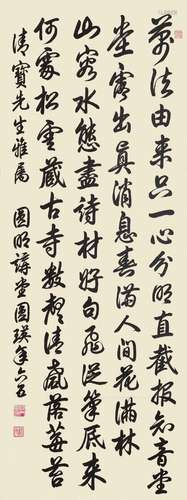 萬法由來只一心分明直截報知音堂
堂露出真消息春滿人間花滿林
山容水態盡詩材好句飛從筆底來
何處松雲藏古寺數聲清磬落莓苔
清寶先生雅屬 圓明講堂圓瑛年六五